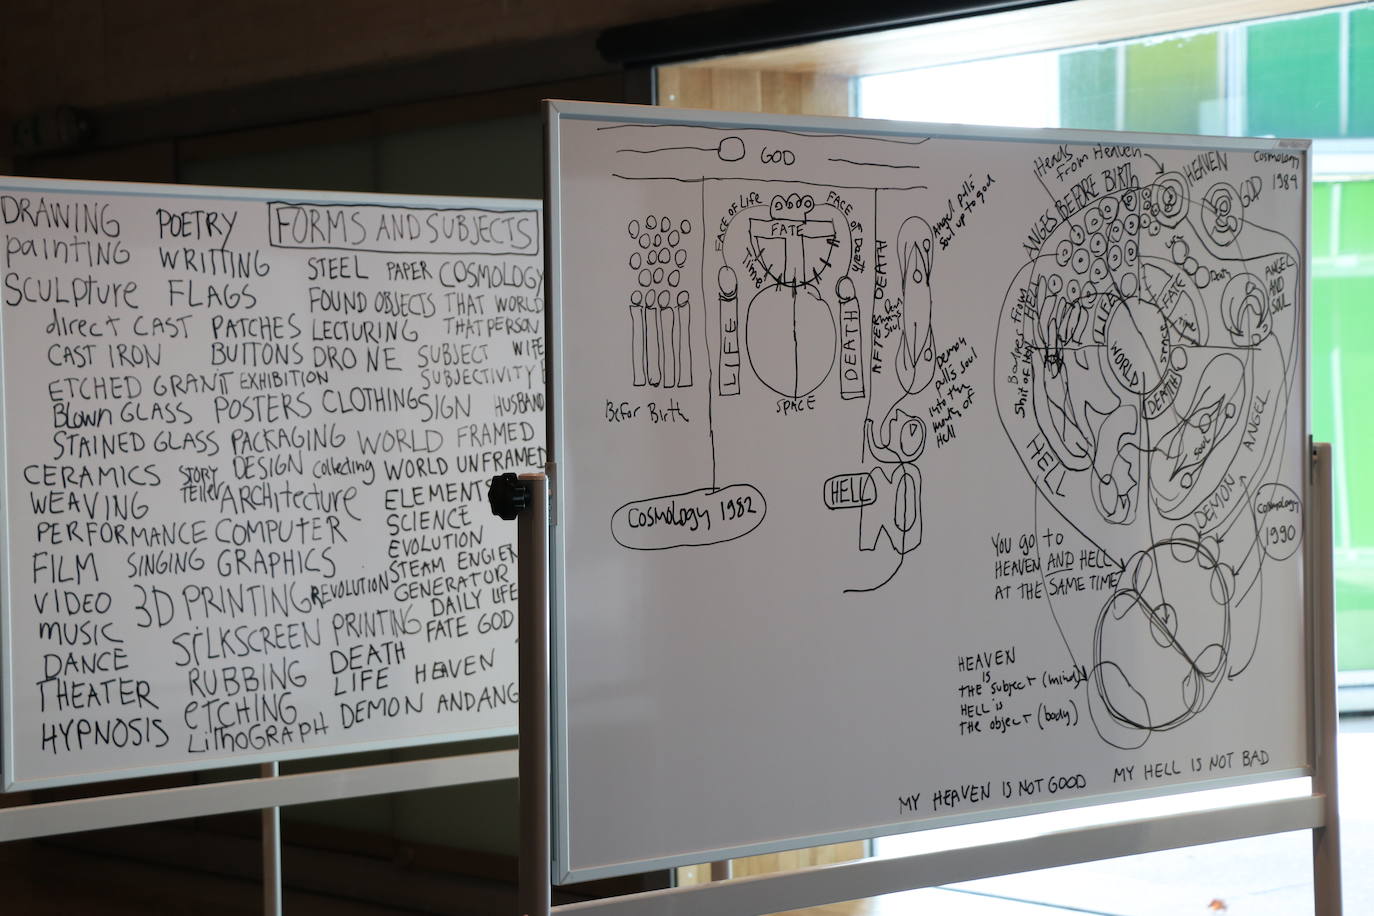 DRAWING
PAINTING
SCULPTURE
direct CAST
CAST IRON
ETCHED GRANIT
Blown GLASS
STAINED GLASS
CERAMICS
WEAVING
PERFORMANCE
FILM
VIDEO
MUSIC
DANCE
THEATER
HYPNOSIS
POETRY
WRITTING
FLAGS
PATCHES
BUTTONS
EXHIBITION
POSTERS
PACKAGING
STORY
TELLER
DESIGN
collecting
ARCHITECTURE
COMPUTER
SINGING GRAPHICS
3D PRINTING
SILKSCREEN PRINTING
RUBBING
ETCHING
LITHOGRAPH
FORMS AND SUBJECTS
STEEL PAPER COSMOLOGY
FOUND OBJECTS THAT WORLD
LECTURING THAT PERSON
DRONE SUBJECT WIFE
SUBJECTIVITY
CLOTHING SIGN HUSBAND
WORLD FRAMED
WORLD UNFRAMED
ELEMENTS
SCIENCE
EVOLUTION
STEAM ENGIER
REVOLUTION GENERATOR
DAILY LIFE
FATE GOD
DEATH
LIFE HEAVEN
DEMON AND ANG
GOD
FACE OF LIFE
FACE OF DEATH
FATE
Time
LIFE
DEATH
SPACE
Befor Birth
AFTER DEATH
Angel pulls
soul up to god
Demon
pulls soul
into the
mouth of
Hell
HELL
Cosmology 1982
Heads
From Heaven
HEAVEN
Cosmology
1984
GOD
ANGES BEFORE BIRTH
Life
Death
ANGEL
AND
SOUL
HELL
LIFE
FATE
Time
SPACE
WORLD
DEATH
HELL
Soul
ANGEL
DEMON
Cosmology
1990
You go to
HEAVEN AND HELL
AT THE SAME TIME
HEAVEN
IS
THE subject (mind)
HELL is
THE object (body)
MY HEAVEN IS NOT GOOD
MY HELL IS NOT BAD